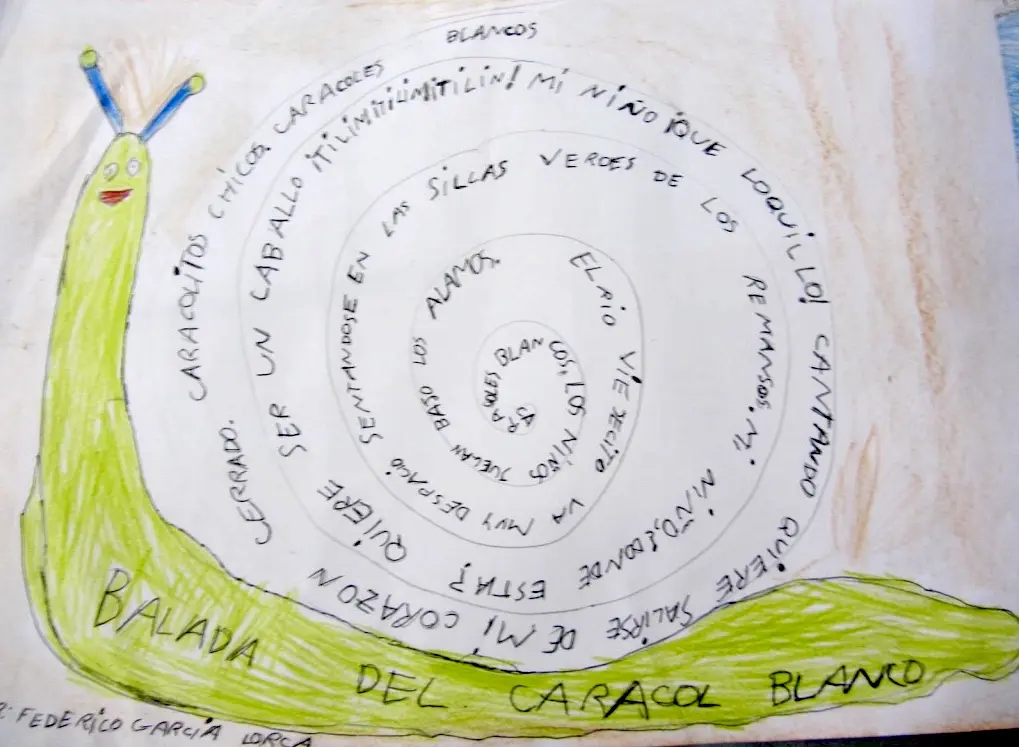 BLANCOS, LOS NIÑOS JUEGAN BAJO LOS ALAMOS.
EL RIO VIEJECITO VA MUY DESPACIO SENTANDOSE EN LAS SILLAS VERDES DE LOS REMANSOS. MI NIÑO, ¿DONDE ESTA?
QUIERE SER UN CABALLO ¡TILIMITILIMITILIN! MI NIÑO ¡QUE LOQUILLO! CANTANDO QUIERE SALIRSE DE MI CORAZON
CERRADO.
CARACOLITOS CHICOS. CARACOLES BLANCOS
BALADA DEL CARACOL BLANCO
FEDERICO GARCIA LORCA